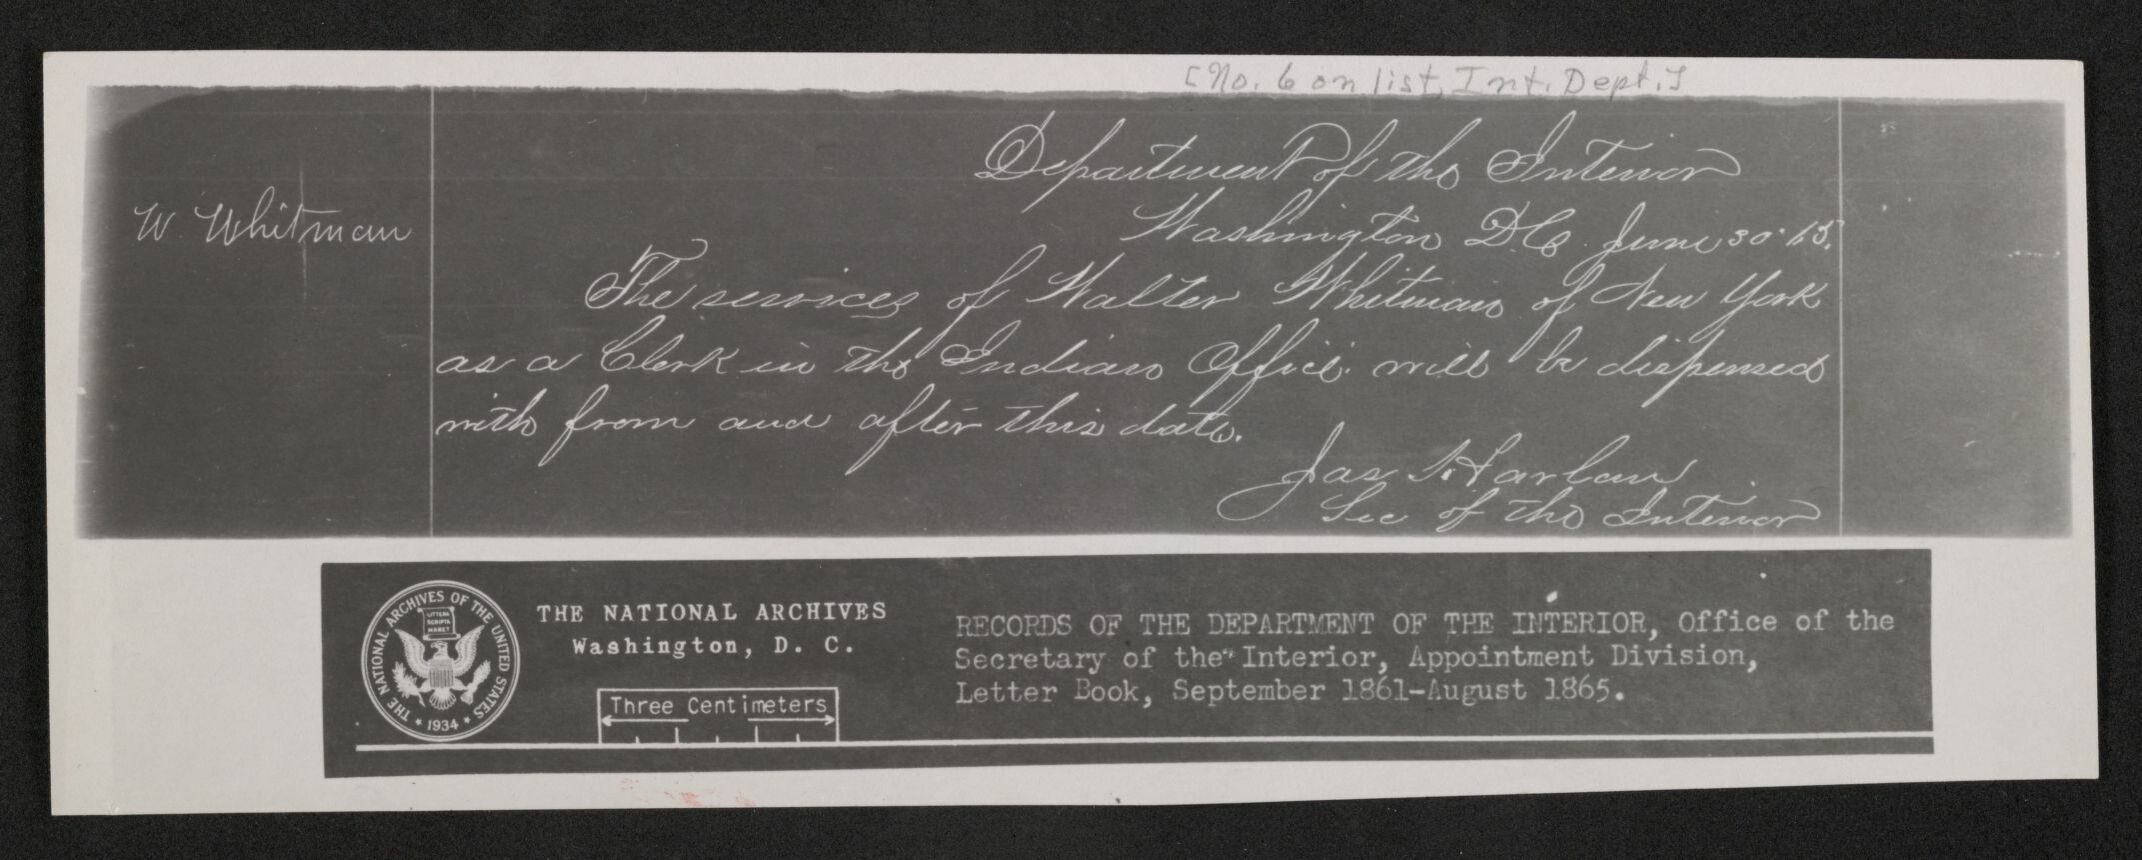 [No. 6 on list, Int. Dept.]
Department of the Interior
W. Whitman
Washington D.C. June 30. 65.
The services of Walter Whitman of New York
as a Clerk in the Indian Office will be dispensed
with from and after this date.
Jas Harlan
Sec of the Interior
THE NATIONAL ARCHIVES OF THE UNITED STATES
LITTERA
SCRIPTA
MANET
* 1934 *
THE NATIONAL ARCHIVES
Washington, D. C.
Three Centimeters
RECORDS OF THE DEPARTMENT OF THE INTERIOR, Office of the
Secretary of the Interior, Appointment Division,
Letter Book, September 1861-August 1865.